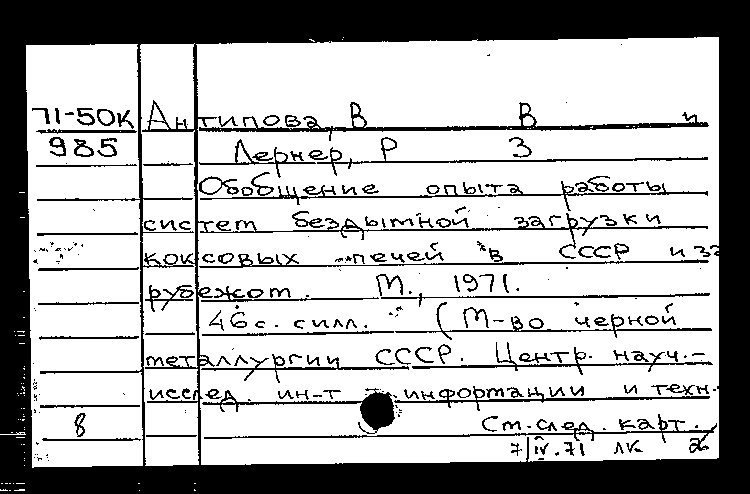 71-50к Антипова, В В и
985 Лернер, Р З
Обобщение опыта работы
систем бездымной загрузки
коксовых печей в СССР и за
рубежом. М., 1971.
46 с. с илл. (М-во черной
металлургии СССР. Центр. науч.-
исслед. ин-т информации и техн.
8 См. след. карт.
7/IV.71 ЛК